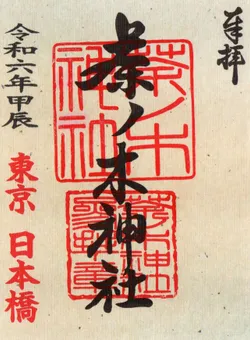 奉拝
茶ノ木神社
茶ノ木
神社
令和六年甲辰
東京 日本橋